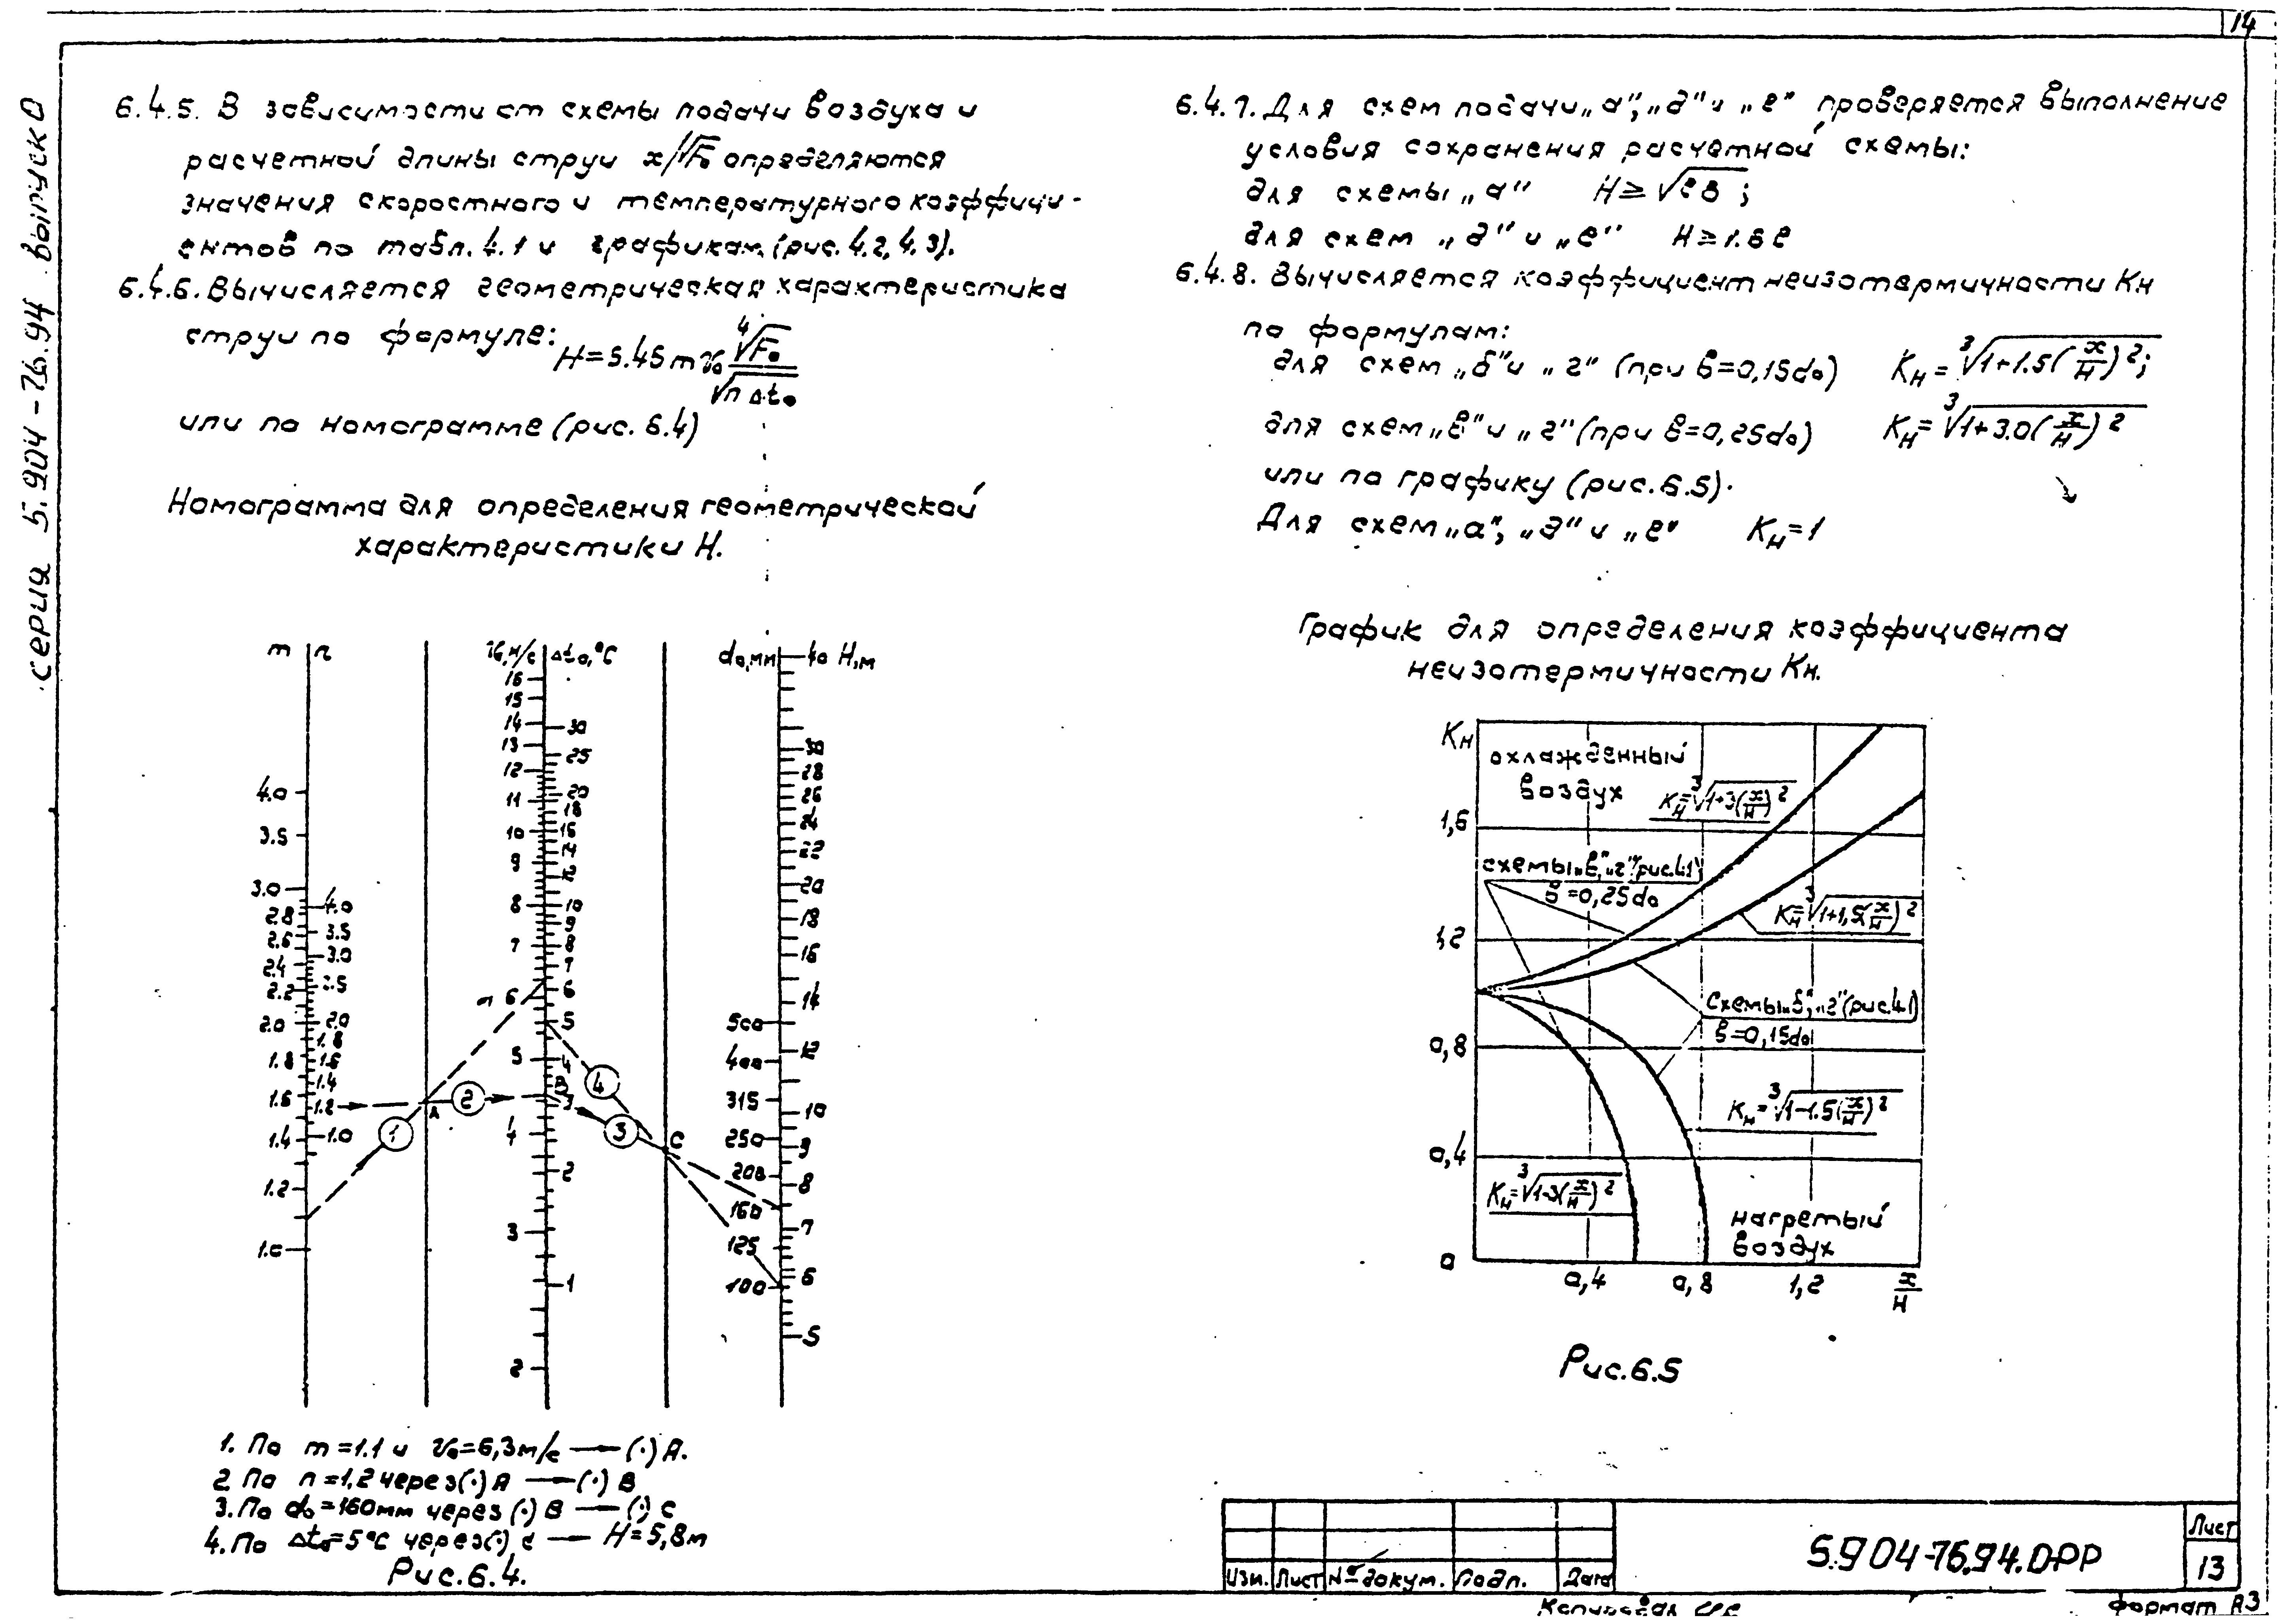 14
серия 5.904-76.94 выпуск 0
6.4.5. В зависимости от схемы подачи воздуха и
расчетной длины струи x/√F₀ определяются
значения скоростного и температурного коэффици-
ентов по табл. 4.1 и графикам (рис. 4.2, 4.3).
6.4.6. Вычисляется геометрическая характеристика
струи по формуле: H=5.45 m v₀ ⁴√F₀ / √n Δt₀
или по номограмме (рис. 6.4)
Номограмма для определения геометрической
характеристики H.
m n v₀,м/с Δt₀,°C d₀,мм H,м
4.0 3.5 3.0 2.8 2.6 2.4 2.2 2.0 1.8 1.6 1.4 1.2 1.0
4.0 3.5 3.0 2.5 2.0 1.8 1.6 1.4 1.2 1.0
16 15 14 13 12 11 10 9 8 7 6 5 4 3 2
30 25 20 18 16 14 12 10 9 8 7 6 5 4 3 2 1
500 400 315 250 200 160 125 100
40 30 28 26 24 22 20 18 16 14 12 10 9 8 7 6 5
1 A 2 B 3 4 C
1. По m=1.1 и v₀=6,3м/с → (·) A.
2 По n=1,2 через (·) A → (·) B
3. По d₀=160мм через (·) B → (·) C
4. По Δt₀=5°C через (·) c — H=5,8м
Рис.6.4.
6.4.7. Для схем подачи „а", „д" и „е" проверяется выполнение
условия сохранения расчетной схемы:
для схемы „а" H≥√ℓв;
для схем „д" и „е" H≥1.6ℓ
6.4.8. Вычисляется коэффициент неизотермичности Kн
по формулам:
для схем „б" и „г" (при б=0,15d₀) Kн=³√1+1.5(x/H)²;
для схем „в" и „г" (при б=0,25d₀) Kн=³√1+3.0(x/H)²
или по графику (рис.6.5).
Для схем „а", „д" и „е" Kн=1
График для определения коэффициента
неизотермичности Kн.
Kн
охлажденный
воздух
Kн=³√1+3(x/H)²
1,6
схемы „в", „г" (рис.4.1)
б=0,25d₀
Kн=³√1+1,5(x/H)²
1,2
схемы „б", „г" (рис.4.1)
б=0,15d₀
0,8
Kн=³√1-1.5(x/H)²
0,4
Kн=³√1-3(x/H)²
нагретый
воздух
0 0,4 0,8 1,2 x/H
Рис.6.5
Изм. Лист №докум. Подп. Дата
5.904-76.94.0-РР
Лист
13
Копировал
Формат А3